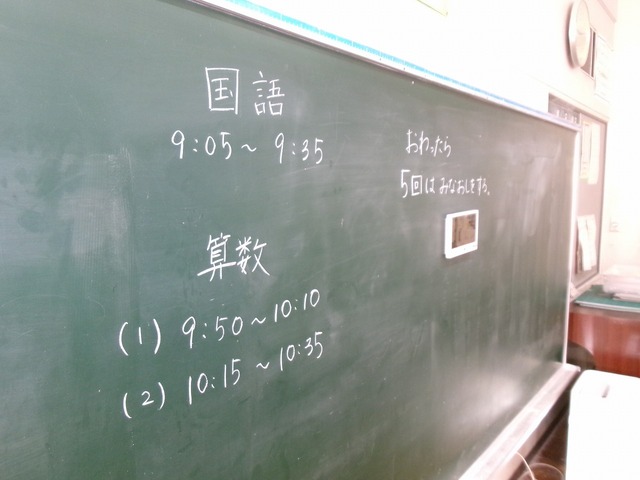 国語
9:05～9:35
算数
(1) 9:50～10:10
(2) 10:15～10:35
おわったら
5回はみなおしをする。